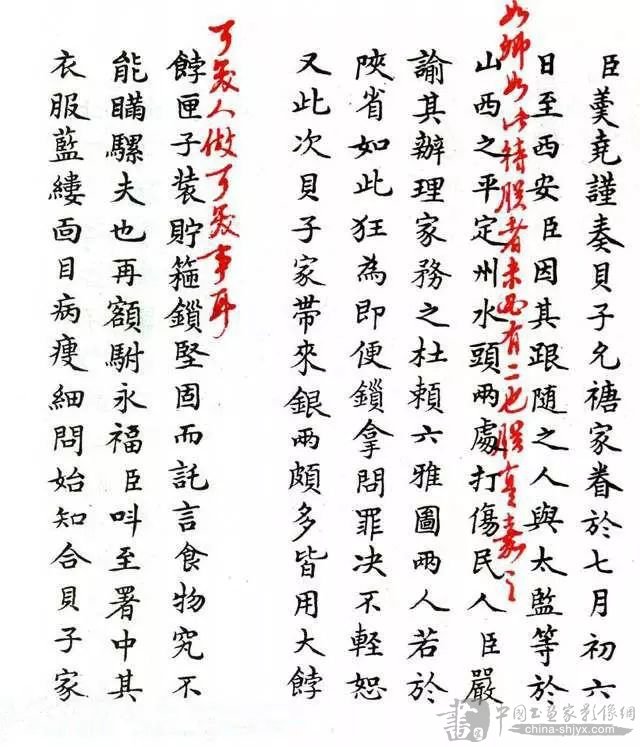 臣羹堯謹奏貝子允禟家眷於七月初六
日至西安臣因其跟隨之人與太監等於
如卿如此待朕者未必有二也朕真嘉之
山西之平定州水頭兩處打傷民人臣嚴
諭其辦理家務之杜賴六雅圖兩人若於
陜省如此狂為即便鎖拿問罪决不輕恕
又此次貝子家帶來銀兩頗多皆用大餑
可笑人做可笑事耳
餑匣子裝貯箍鎖堅固而託言食物究不
能瞞騾夫也再額駙永福臣呌至署中其
衣服藍縷面目病瘦細問始知合貝子家
中国书画家影像網
china-shjyx.com